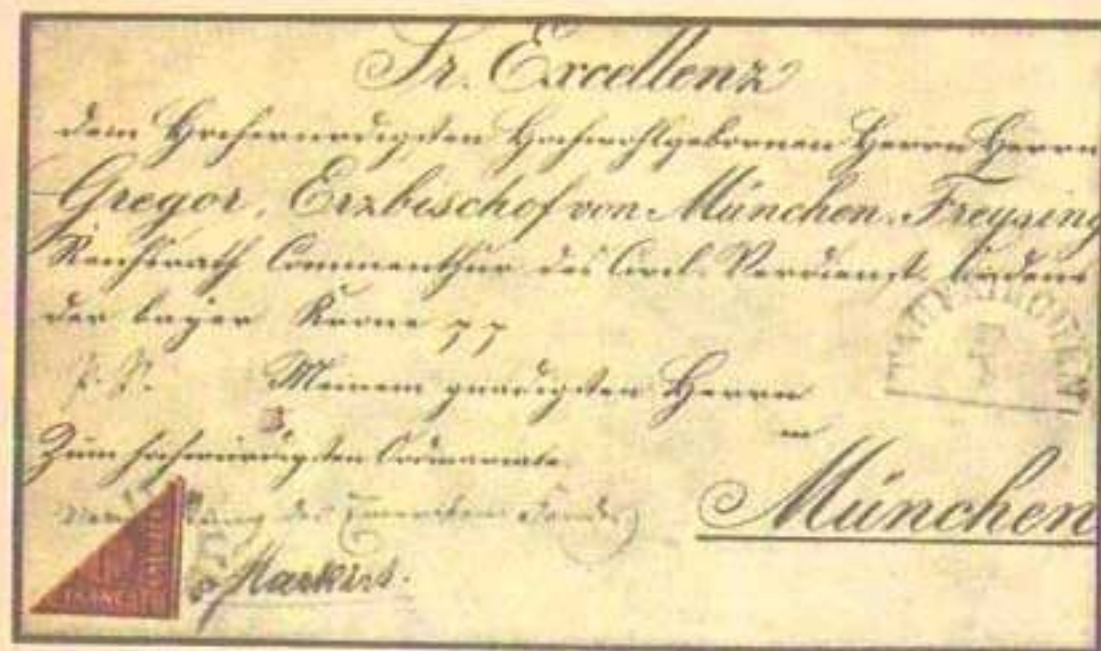 Sr. Excellenz
dem Hochwürdigsten Hochwohlgebornen Herrn Herrn
Gregor, Erzbischof von München-Freysing
Reichsrath Commenthur des Civil-Verdienst Ordens
der bayer Krone pp
p. p. Meinem gnädigsten Herrn
in
Zum hochwürdigsten Ordinariate
München
des Emeriten Fondes
Markirt.
FRANCO